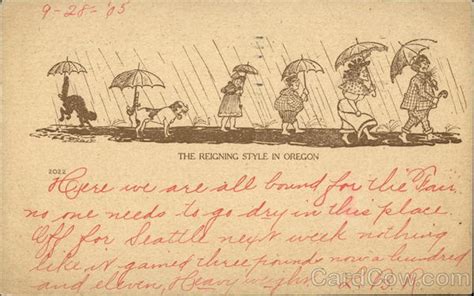 9-28-'05
THE REIGNING STYLE IN OREGON
2022
Here we are all bound for the Fair,
no one needs to go dry in this place
Off for Seattle next week nothing
like it gained three pounds now a hundred
and eleven, Heavy
CardCow.com